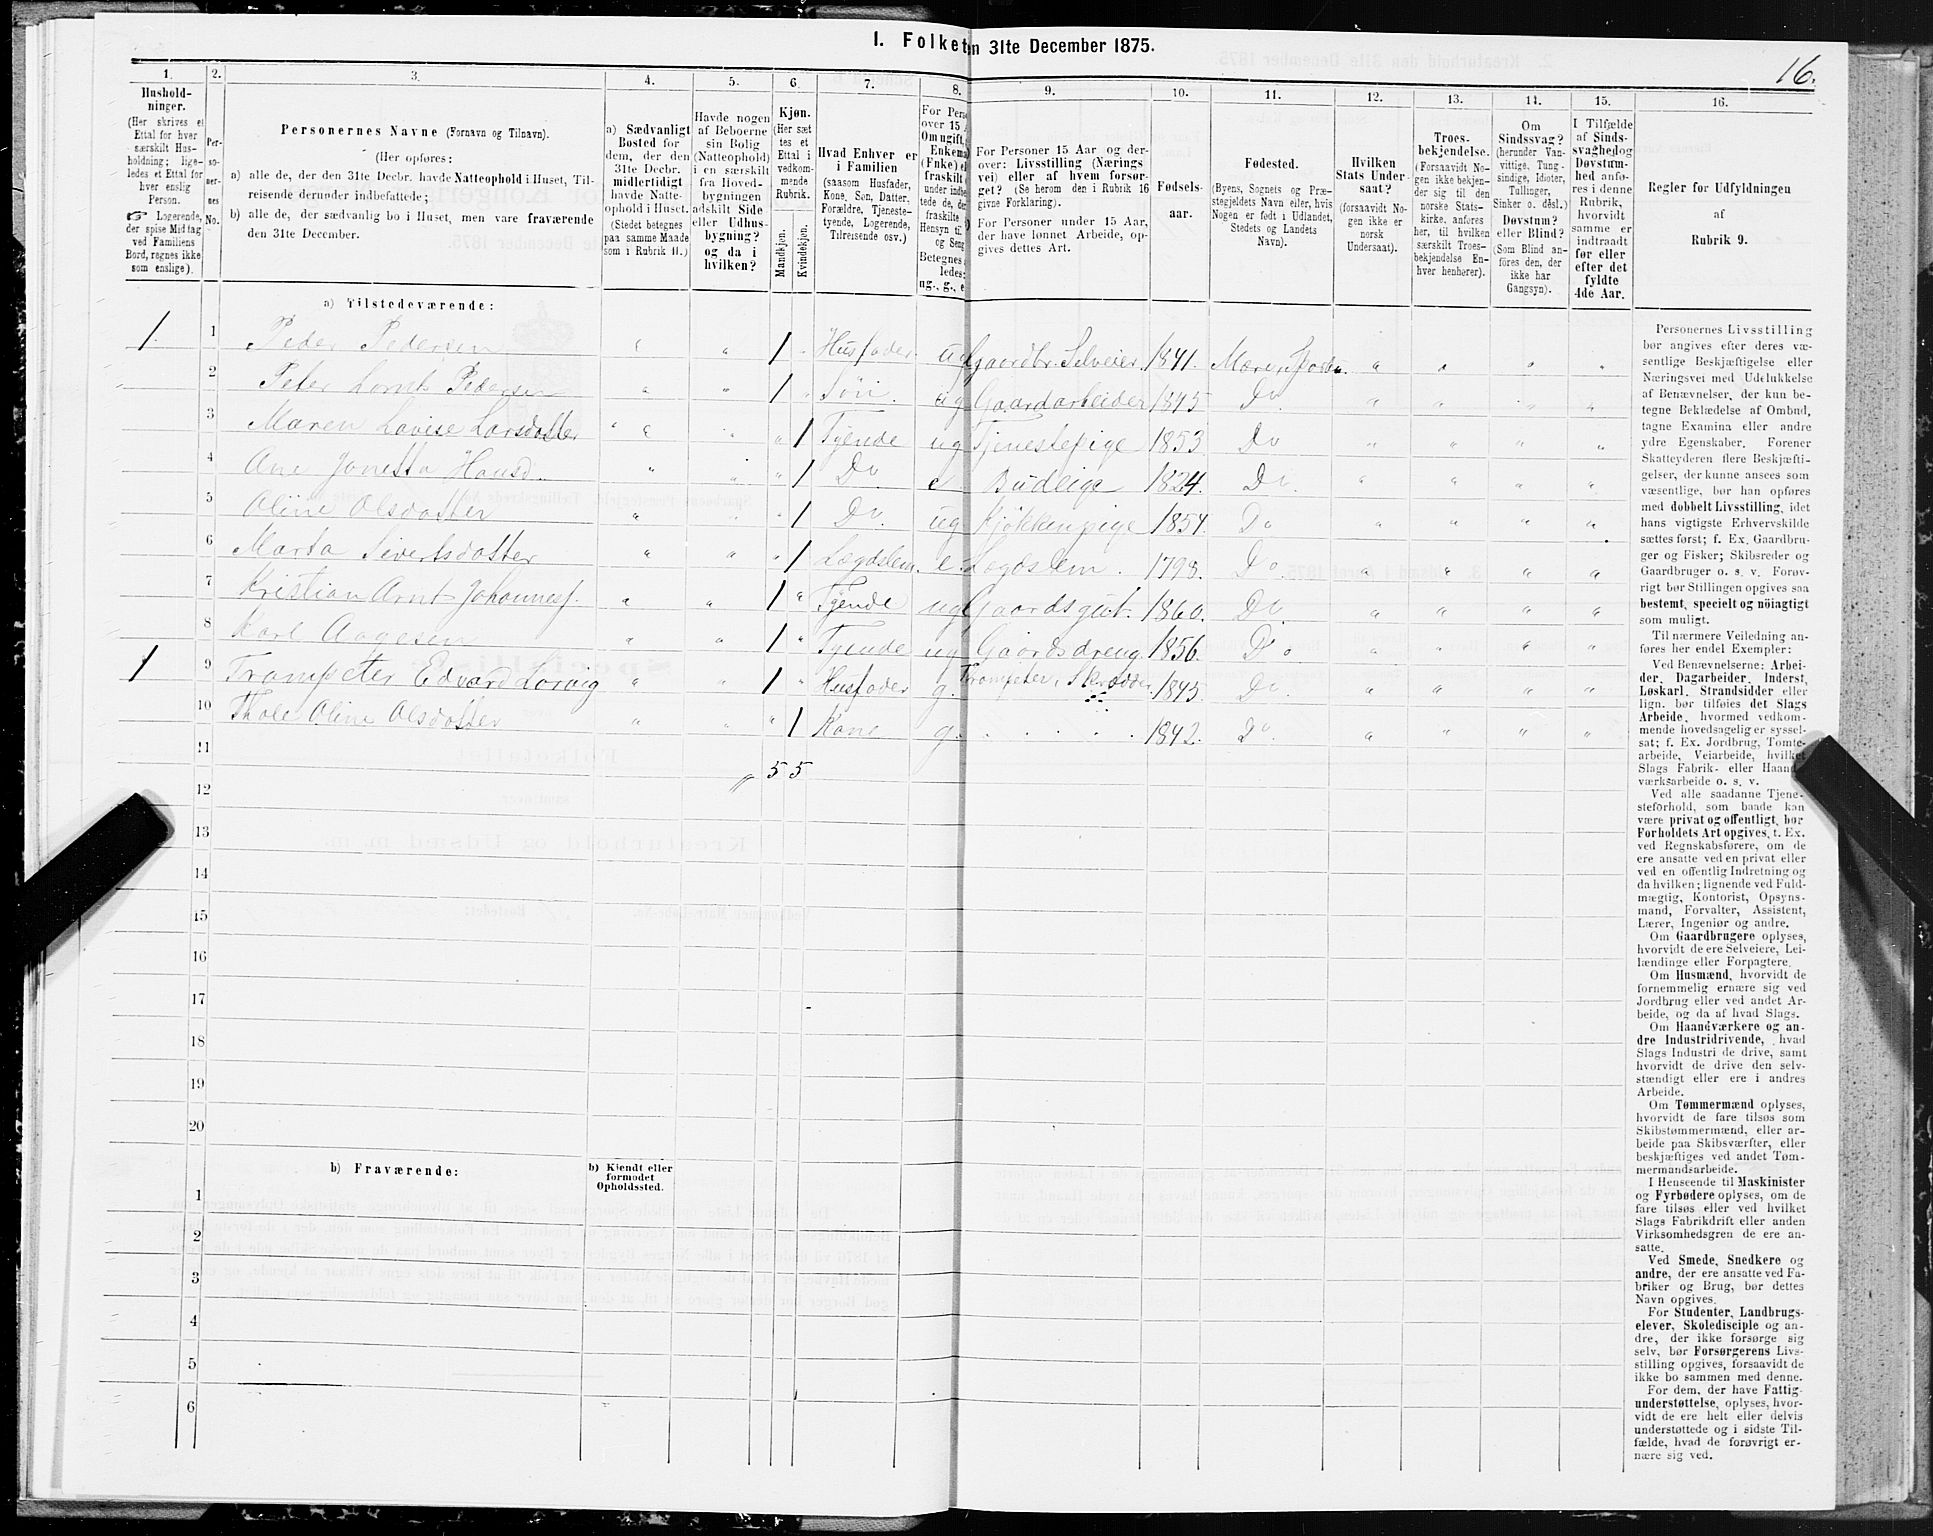 I. Folket n 31te December 1875.
16.
1. 2. 3. 4. 5. 6. 7. 8. 9. 10. 11. 12. 13. 14. 15. 16.
Hushold-
ninger.
(Her skrives et
Ettal for hver
særskilt Hus-
holdning; lige-
ledes et Ettal for
hver enslig
Person.
☞ Logerende,
der spise Middag
ved Familiens
Bord, regnes ikke
som enslige).
Per-
so-
ner-
nes
No.
Personernes Navne (Fornavn og Tilnavn).
(Her opføres:
a) alle de, der den 31te Decbr. havde Natteophold i Huset, Til-
reisende derunder indbefattede;
b) alle de, der sædvanlig bo i Huset, men vare fraværende
den 31te December.
a) Sædvanligt
Bosted for
dem, der den
31te Decbr.
midlertidigt
havde Natte-
ophold i Huset.
(Stedet betegnes
paa samme Maade
som i Rubrik 11.)
Havde nogen
af Beboerne
sin Bolig
(Natteophold)
i en særskilt
fra Hoved-
bygningen
adskilt Side
eller Udhus-
bygning?
og da i
hvilken?
Kjøn.
(Her sæt
tes et
Ettal i
vedkom-
mende
Rubrik.
Mandkjøn.
Kvindekjøn.
Hvad Enhver er
i Familien
(saasom Husfader,
Kone, Søn, Datter,
Forældre, Tjeneste-
tyende, Logerende,
Tilreisende osv.)
For Pers
over 15 A
Om ugift,
Enkema
(Enke) el
fraskilt
under indbe
tede de, de
fraskilte
Hensyn til
og Seng
Betegnes
ledes:
ug., g., e
For Personer 15 Aar og der-
over: Livsstilling (Nærings
vei) eller af hvem forsør-
get? (Se herom den i Rubrik 16
givne Forklaring).
For Personer under 15 Aar,
der have lønnet Arbeide, op-
gives dettes Art.
Fødsels-
aar.
Fødested.
(Byens, Sognets og Præ-
stegjeldets Navn eller, hvis
Nogen er født i Udlandet,
Stedets og Landets
Navn).
Hvilken
Stats Under-
saat?
(forsaavidt No-
gen ikke er
norsk
Undersaat).
Troes-
bekjendelse.
(Forsaavidt No-
gen ikke bekjen-
der sig til den
norske Stats-
kirke, anføres
her, til hvilken
særskilt Troes-
bekjendelse En-
hver henhører).
Om
Sindssvag?
(herunder Van-
vittige, Tung-
sindige, Idioter,
Tullinger,
Sinker o. désl.)
Døvstum?
eller Blind?
(Som Blind an-
føres den, der
ikke har
Gangsyn).
I Tilfælde
af Sinds-
svaghed og
Døvstum-
hed anfø-
res i denne
Rubrik,
hvorvidt
samme er
indtraadt
før eller
efter det
fyldte
4de Aar.
Regler for Udfyldningen
af
Rubrik 9.
a) Tilstedeværende:
1 1 Peder Pedersen " " 1 " Husfader. ug Gaardbr. Selveier 1841. " " " "
2 Peter Pedersen " " 1 " Søn. ug Gaardarbeider 1845 Do " " " "
3 Maren Lovise Larsdatter " " " 1 Tyende ug Tjenestepige 1853. Do " " " "
4 Ane Hansd. " " " 1 Do. e Budeige 1824. Do. " " " "
5 Oline Olsdatter " " " 1 Do. ug Kjøkkenpige 1854. Do " " " "
6 Marta Sivertsdatter " " " 1 Lægdslem. e. Lægdslem. 1798. Do. " " " "
7 Kristian Arnt Johannesf. " " 1 " Tyende ug Gaardsgut. 1860. Do. " " " "
8 Karl Aagesen " " 1 " Tyende ug Gaardsdreng. 1856. Do " " " "
1 9 Trompeter Edvard Lorvig " " 1 " Husfader g. Trompeter, Skrædder. 1845. Do. " " " "
10 Thale Oline Olsdatter " " " 1 Kone g. . . . . 1842. Do. " " " "
11 " 5 5
12
13
14
15
16
17
18
19
20
b) Fraværende:
b) Kjendt eller
formodet
Opholdssted.
1
2
3
4
5
6
Personernes Livsstilling
bør angives efter deres væ-
sentlige Beskjæftigelse eller
Næringsvei med Udelukkelse
af Benævnelser, der kun be-
tegne Beklædelse af Ombud,
tagne Examina eller andre
ydre Egenskaber. Forener
Skatteyderen flere Beskjæfti-
gelser, der kunne ansees som
væsentlige, bør han opføres
med dobbelt Livsstilling, idet
hans vigtigste Erhvervskilde
sættes først; f. Ex. Gaardbru-
ger og Fisker; Skibsreder og
Gaardbruger o. s. v. Forøv-
rigt bør Stillingen opgives saa
bestemt, specielt og nöiagtigt
som muligt.
Til nærmere Veiledning an-
føres her endel Exempler:
Ved Benævnelserne: Arbei-
der, Dagarbeider, Inderst,
Løskarl, Strandsidder eller
lign. bør tilføies det Slags
Arbeide, hvormed vedkom-
mende hovedsagelig er syssel-
sat; f. Ex. Jordbrug, Tomte-
arbeide, Veiarbeide, hvilket
Slags Fabrik- eller Haand-
værksarbeide o. s. v.
Ved alle saadanne Tjene-
steforhold, som baade kan
være privat og offentligt, bør
Forholdets Art opgives, t. Ex.
ved Regnskabsførere, om de
ere ansatte ved en privat eller
ved en offentlig Indretning og
da hvilken; lignende ved Fuld-
mægtig, Kontorist, Opsyns-
mand, Forvalter, Assistent,
Lærer, Ingeniør og andre.
Om Gaardbrugere oplyses,
hvorvidt de ere Selveiere, Lei-
lændinge eller Forpagtere.
Om Husmænd, hvorvidt de
fornemmelig ernære sig ved
Jordbrug eller ved andet Ar-
beide, og da af hvad Slags.
Om Haandværkere og an-
dre Industridrivende, hvad
Slags Industri de drive, samt
hvorvidt de drive den selv-
stændigt eller ere i andres
Arbeide.
Om Tømmermænd oplyses,
hvorvidt de fare tilsøs som
Skibstømmermænd, eller ar-
beide paa Skibsværfter, eller
beskjæftiges ved andet Tøm-
mermandsarbeide.
I Henseende til Maskinister
og Fyrbødere oplyses, om de
fare tilsøs eller ved hvilket
Slags Fabrikdrift eller anden
Virksomhedsgren de ere an-
satte.
Ved Smede, Snedkere og
andre, der ere ansatte ved Fa-
briker og Brug, bør dettes
Navn opgives.
For Studenter, Landbrugs-
elever, Skoledisciple og an-
dre, der ikke forsørge sig
selv, bør Forsørgerens Livs-
stilling opgives, forsaavidt de
ikke bo sammen med denne.
For dem, der have Fattig-
understøttelse, oplyses, hvor-
vidt de ere helt eller delvis
understøttede og i sidste Til-
fælde, hvad de forøvrigt er-
nære sig ved.